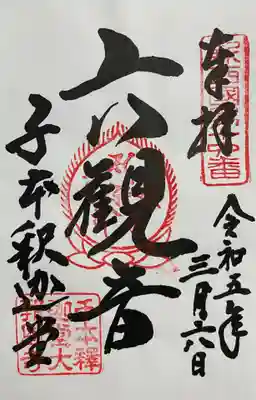 奉拝
令和五年
三月六日
六觀音
千本釈迦堂
千本釋
迦堂大
報恩寺